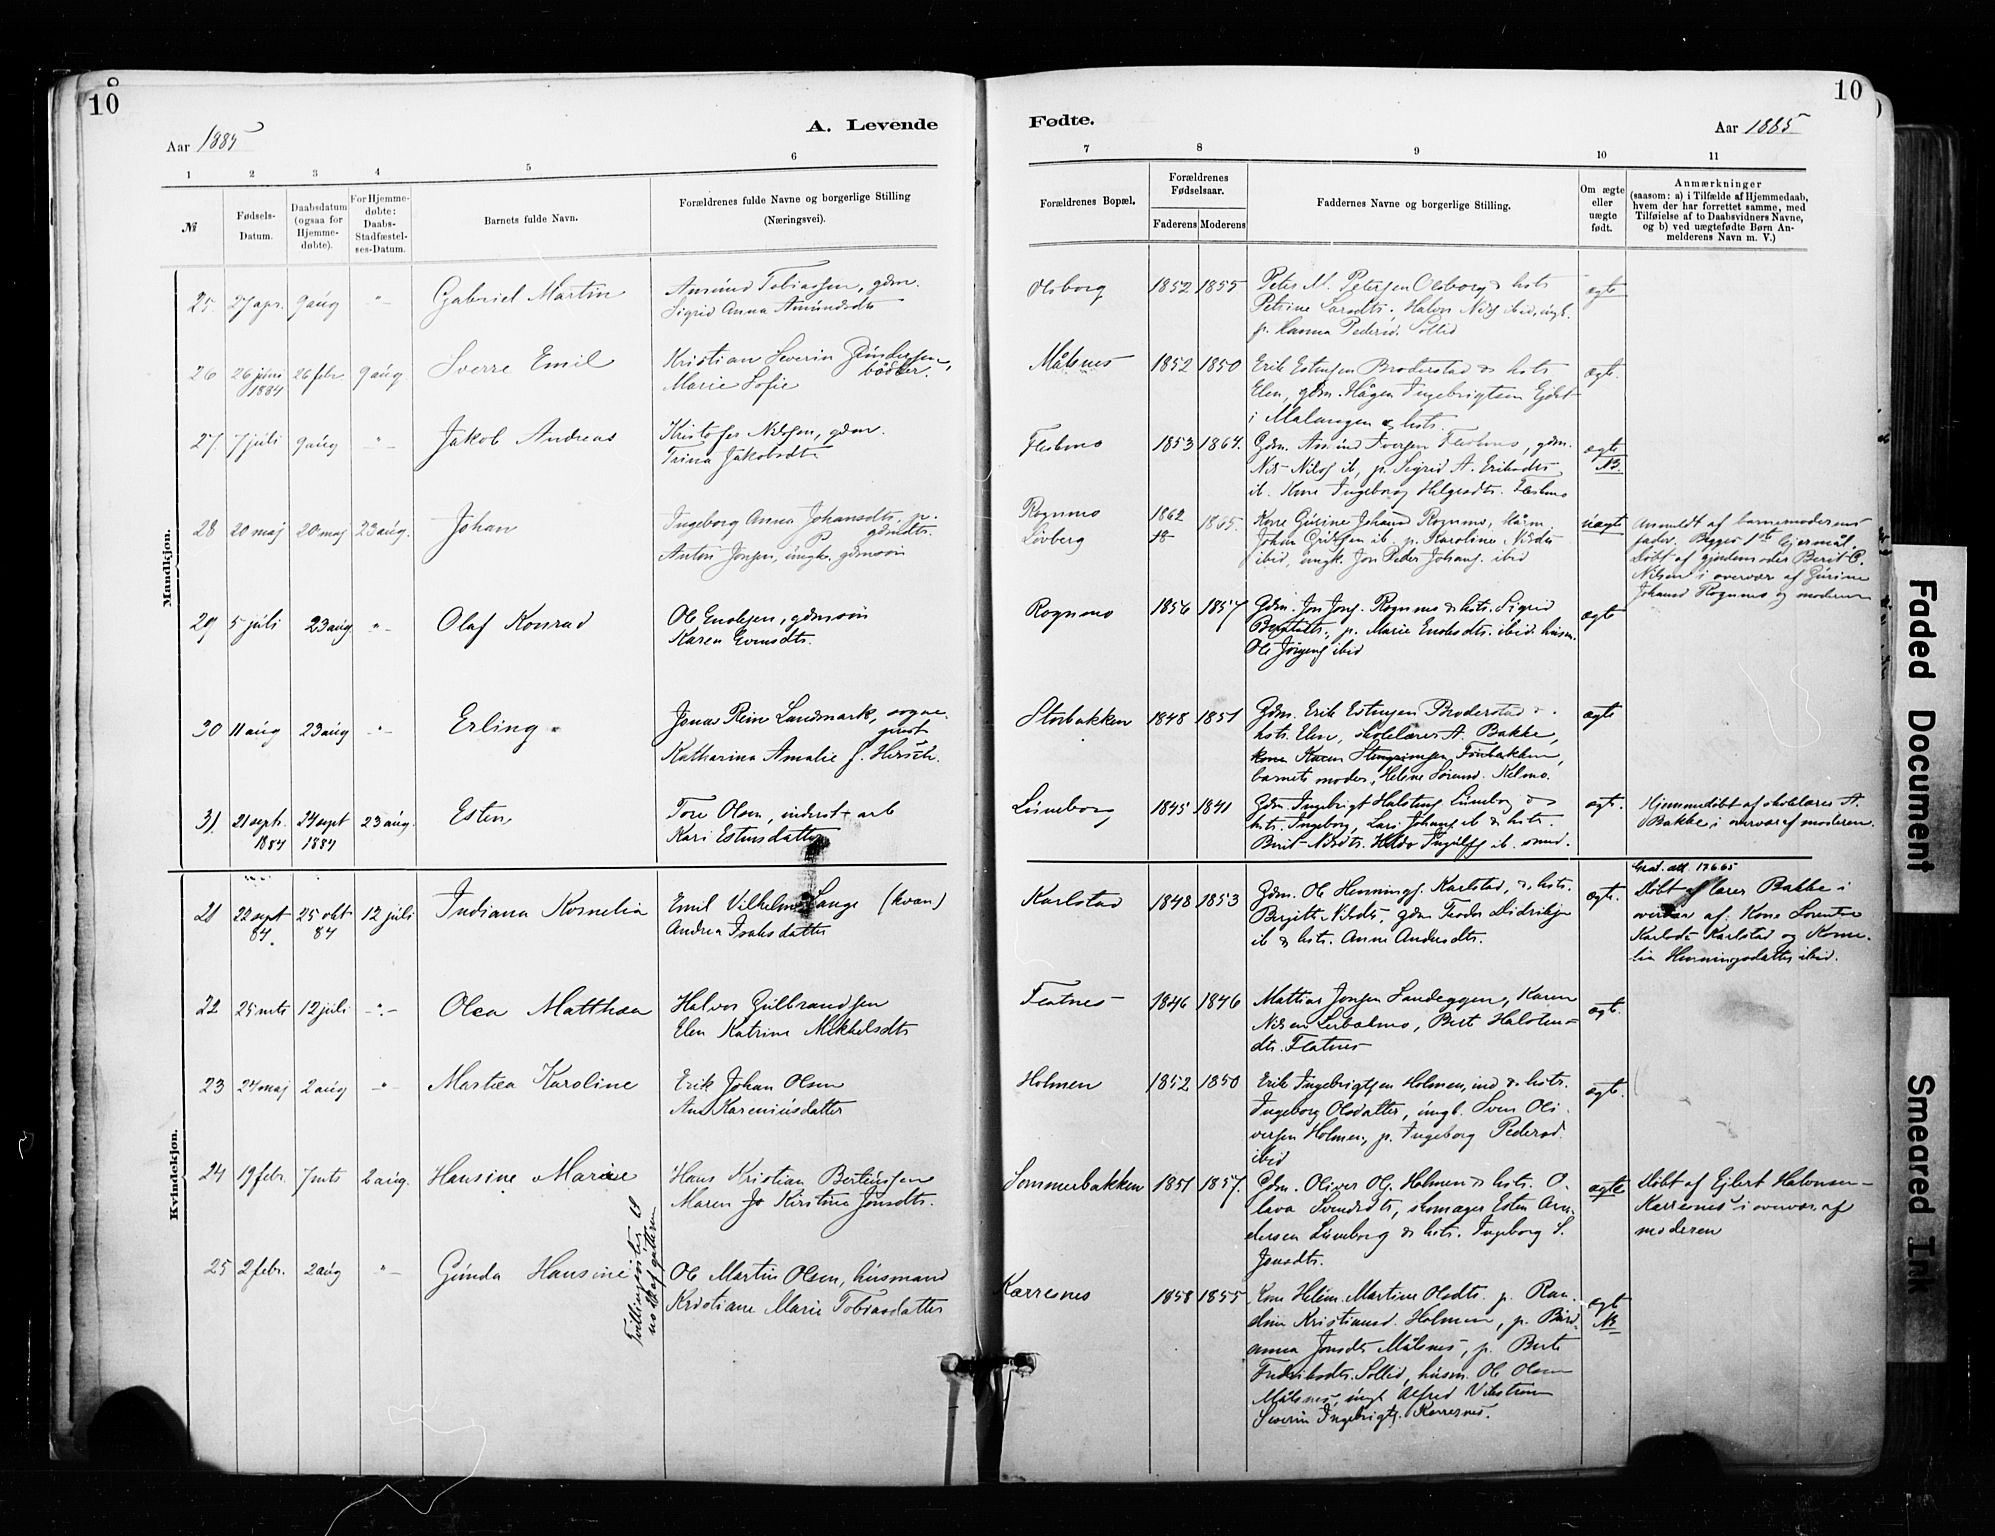 10
10
Aar 1885
A. Levende
Fødte.
Aar 1885
1 2 3 4 5 6
7 8 9 10 11
№
Fødsels-
Datum.
Daabsdatum
(ogsaa for
Hjemme-
døbte).
For Hjemme-
døbte:
Daabs-
Stadfæstel-
ses-Datum.
Barnets fulde Navn.
Forældrenes fulde Navne og borgerlige Stilling
(Næringsvei).
Forældrenes Bopæl.
Forældrenes
Fødselsaar.
Faderens Moderens
Faddernes Navne og borgerlige Stilling.
Om ægte
eller
uægte
født.
Anmærkninger
(saasom: a) i Tilfælde af Hjemmedaab,
hvem der har forrettet samme, med
Tilføielse af to Daabsvidners Navne,
og b) ved uægtefødte Børn An-
melderens Navn m. V.)
Mandkjøn.
25. 27 apr. 9 aug -"- Gabriel Martin
Amund Tobiassen, gdm.
Sigrid Anna Amundsdtr
Olsborg 1852 1855
Peter M. Petersen Olsborg & hstr
Petrine
p. Hanna Pedersd. Sollid
ægte
26 26 juni 1884 26 febr 9 aug Sverre Emil
Kristian Severin
bødker.
Marie Sofie
Målsnes 1852 1850
Erik Estensen Broderstad & hstr
Elen, gdm. Hågen Ingebrigtsen
i Malangen & hstr.
ægte.
27. 7 juli 9 aug -"- Jakob Andreas
Kristofer Nilssen, gdm.
Trina Jakobsdtr
Fleskmo 1853 1864.
Gdm. Iversen Fleskmo, gdm.
Nils Nilss ib, p. Sigrid A. Eriksdtr
ib. Kone Ingeborg Helgesdtr. Fleskmo
ægte
NB.
28 20 maj 20 maj 23 aug. Johan
Ingeborg Anna Johansdtr, p.
Anton Jonsen, ungk, gdmssøn
Rognmo
Løvberg
1862
1865.
Kone Gurine Johansd Rognmo,
Johan ib. p. Karoline Nilsdtr
ibid, ungk. Jon Peder Johans. ibid
uægte
Anmeldt af barnemoderens
fader. Begges 1ste lejermål.
Døbt af gjordemoder Berit P.
Nilsen i overvær af Gurine
Johansd Rognmo og moderen
29 5 juli 23 aug -"- Olaf Konrad
Ole Enoksen, gdmssøn
Karen Evensdtr.
Rognmo 1856 1857
Gdm. Jon Jons. Rognmo & hstr. Sigrid
p. Marie Enoksdtr. ibid. husm.
Ole Jørgens ibid
ægte
30 11 aug 23 aug -"- Erling
Jonas Rein Landmark, sogne-
prest
Katharina Amalie f. Hirsch.
Storbakken 1848 1851
Gdm. Erik Estensen Broderstad &
hstr. Elen, skolelærer A. Bakke,
kone Karen
barnets moder, Helene
ægte
31 21 sept. 1884 24 sept 1884 23 aug. Esten
Tore Olsen, inderst + arb
Kari Estensdatter
Luneborg 1845 1841
Gdm. Ingebrigt Halstens. Luneborg &
hstr. Ingeborg, Lars Johans ib & hstr.
Berit Nilsdtr.
ægte.
Hjemmedøbt af skolelærer A.
Bakke i overvær af moderen.
Kvindekjøn.
21 22 sept 84. 25 okt 84 12 juli Indiana Kornelia
Emil Vilhelm Lange (kvæn)
Andrea Isaksdatter
Karlstad 1848 1853
Gdm. Ole Hennings. Karlstad, & hstr.
Birgitte Nilsdtr, gdm Teodor Didriksen
ib & hstr. Anne Andersdtr.
ægte.
Grad. att. 17665
Døbt af lærer Bakke i
overvær af: Kone Lorentse
Karlsdtr Karlstad og Korne-
lia Henningsdatter ibid.
22 25 mts 12 juli -"- Olea Matthea
Halvor Gulbrandsen
Elen Katrine Mikkelsdtr
Flatnes 1846 1846
Mattias Jonsen Sandeggen, Karen
Nilsen Berit Halstens-
dtr. Flatnes
ægte.
23 24 maj 2 aug -"- Martea Karoline
Erik Johan Olsen
Ane Kareniusdatter
Holmen 1852 1850
Erik Ingebrigtsen Holmen, ind & hstr.
Ingeborg Olsdatter, ungk. Sven Oli-
versen Holmen, p. Ingeborg Pedersd.
ibid
ægte.
24 19 febr. 7 mts 2 aug. Hansine Marie
Hans Kristian Berteussen
Maren Jo Kirstine Jonsdtr.
Sommerbakken 1851 1857.
Gdm. Oliver Ols. Holmen & hstr. O-
lava Svendsdtr, skomager Esten An-
dersen Luneborg & hstr. Ingeborg S.
Jonsdtr.
ægte
Døbt af Ejlert Halvorsen
Karresnes i overvær af
moderen
25 2 febr. 2 aug -"- Gunda Hansine
Tvillingsøster til
no af gutterne
Ole Martin Olsen, husmand
Kristiane Marie Tobiasdatter
Karresnes 1858 1855
Kone Helene Martine Olsdtr. p. Ran-
dine Kristiansd. Holmen, p. Berd-
anna Jonsdtr Målsnes, p. Berte
Fredriksdtr. Sollid, husm. Ole Olsen
Målsnes, ungk Alfred Vikstrøm
Severin Ingebrigts. Karresnes.
ægte
NB
Faded Document
Smeared Ink